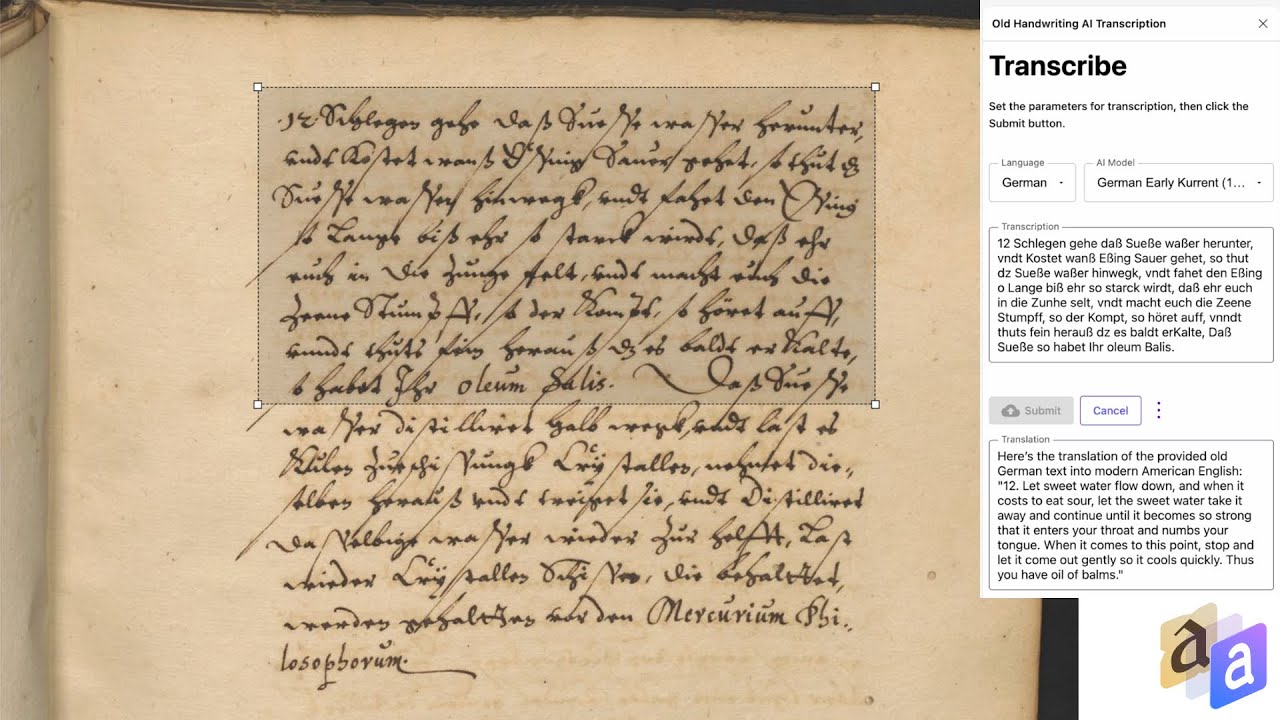 12 Schlegen gehe daß Suesse wasser herunter,
undt Kostet wanß Essing Sauer gehet, so thut dz
Suesse wasser hinwegk, undt fahet den Essing
so Lange biß ehr so starck wirdt, daß ehr
euch in die Zunge felt, undt macht euch die
Zeene Stumpff, so der Kompt, so höret auff,
unndt thuts fein herauß dz es baldt erKalte,
so habet Ihr oleum Salis. Daß Suesse
wasser distilliret halb wegk, undt last es
Kulen Zueschissungk Crystallen, nehmet die-
selben herauß undt treuget sie, undt Distilliret
dasselbige wasser wieder Zur helfft, Last
wieder Crystallen Schissen, die behaltet,
werden gehaltten vor den Mercurium Phi-
losophorum.
Old Handwriting AI Transcription
Transcribe
Set the parameters for transcription, then click the
Submit button.
Language
German
AI Model
German Early Kurrent (1...
Transcription
12 Schlegen gehe daß Sueße waßer herunter,
vndt Kostet wanß Eßing Sauer gehet, so thut
dz Sueße waßer hinwegk, vndt fahet den Eßing
o Lange biß ehr so starck wirdt, daß ehr euch
in die Zunhe selt, vndt macht euch die Zeene
Stumpff, so der Kompt, so höret auff, vnndt
thuts fein herauß dz es baldt erKalte, Daß
Sueße so habet Ihr oleum Balis.
Submit
Cancel
Translation
Here's the translation of the provided old
German text into modern American English:
"12. Let sweet water flow down, and when it
costs to eat sour, let the sweet water take it
away and continue until it becomes so strong
that it enters your throat and numbs your
tongue. When it comes to this point, stop and
let it come out gently so it cools quickly. Thus
you have oil of balms."
a
a